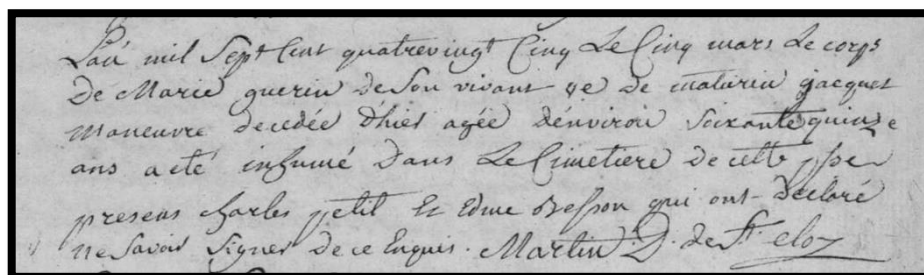 L'an mil Sept Cent quatrevingt Cinq Le Cinq mars Le corps
De Marie guerin de Son vivant ve de maturin jacquet
Maneuvre decedée d'hier agée d'environ Soixante quinze
ans a eté inhumé Dans Le Cimetiere de cette psse
presens charles petit Et Edme Besson qui ont declaré
ne Savoir Signer de ce Enquis. Martin D. de St. eloy